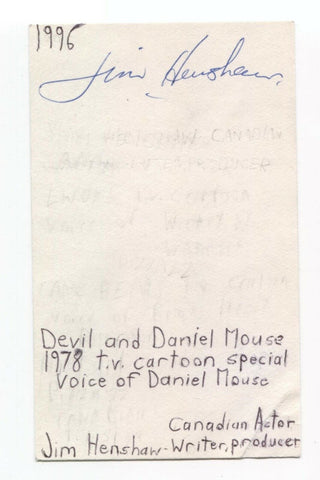 1996
Jim Henshaw.
Devil and Daniel Mouse
1978 t.v. cartoon special
Voice of Daniel Mouse
Canadian Actor
Jim Henshaw-Writer, producer